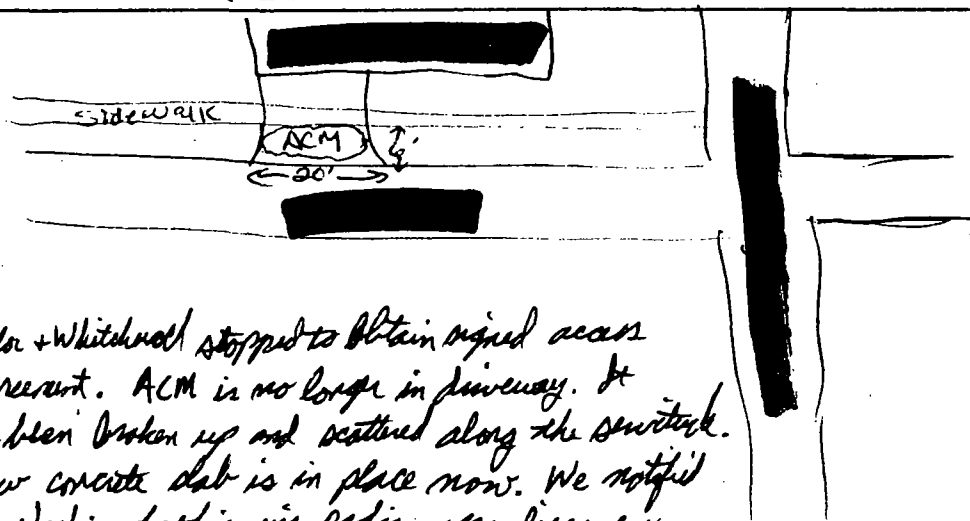 Sidewalk
ACM
8'
20'
+ Whitehead stopped to Obtain signed access
ACM is no longer in driveway. It
been broken up and scattered along the
concrete slab is in place now. We notified